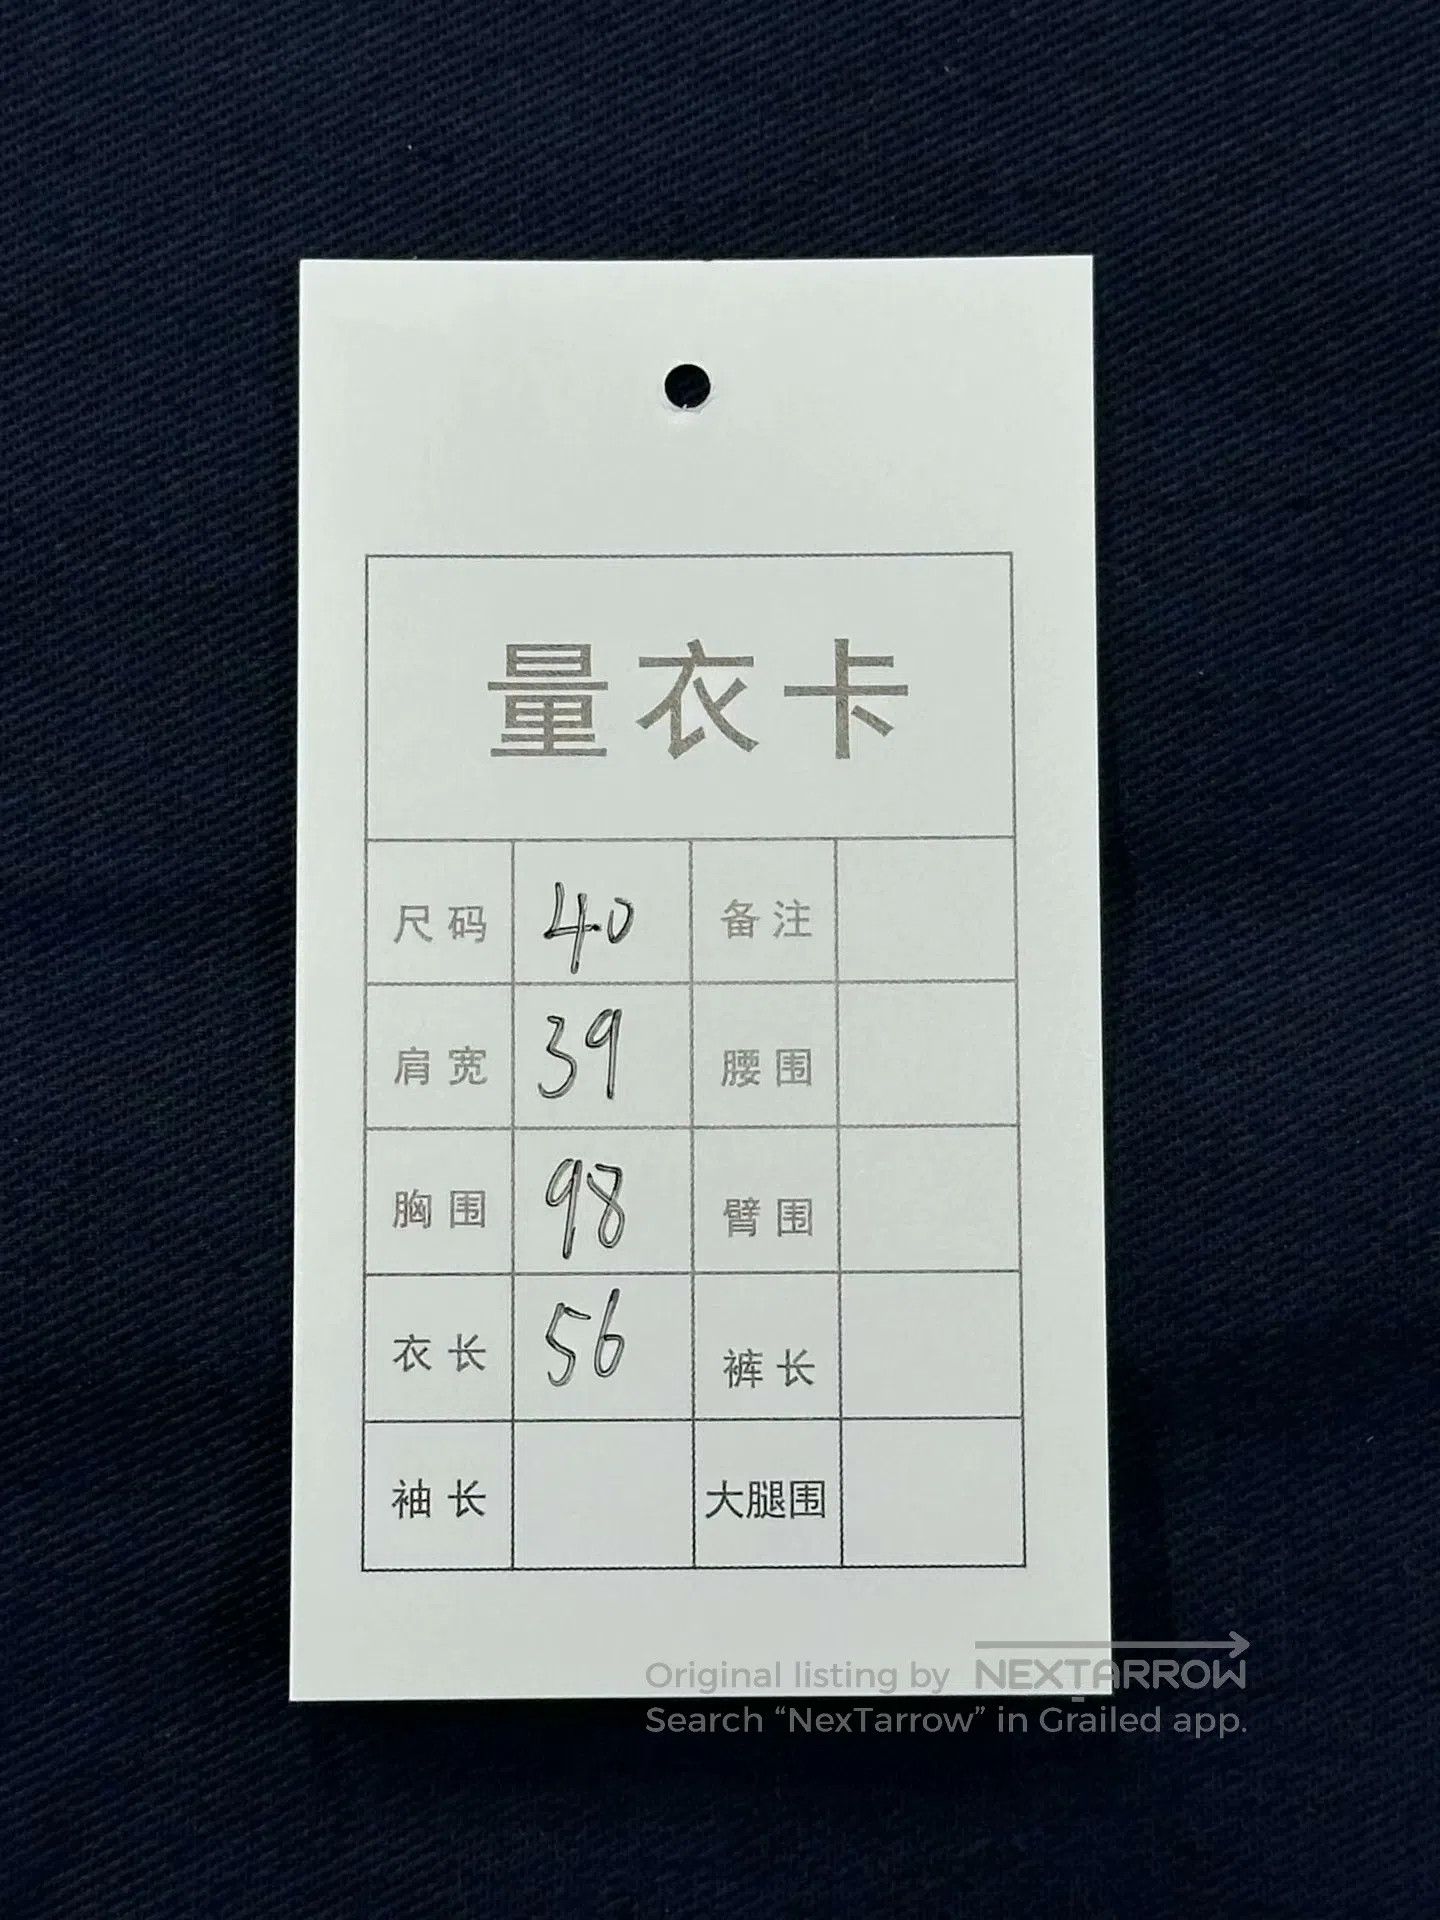 量衣卡
尺码 40 备注
肩宽 39 腰围
胸围 98 臂围
衣长 56 裤长
袖长 大腿围
Original listing by NEXTARROW
Search “NexTarrow” in Grailed app.